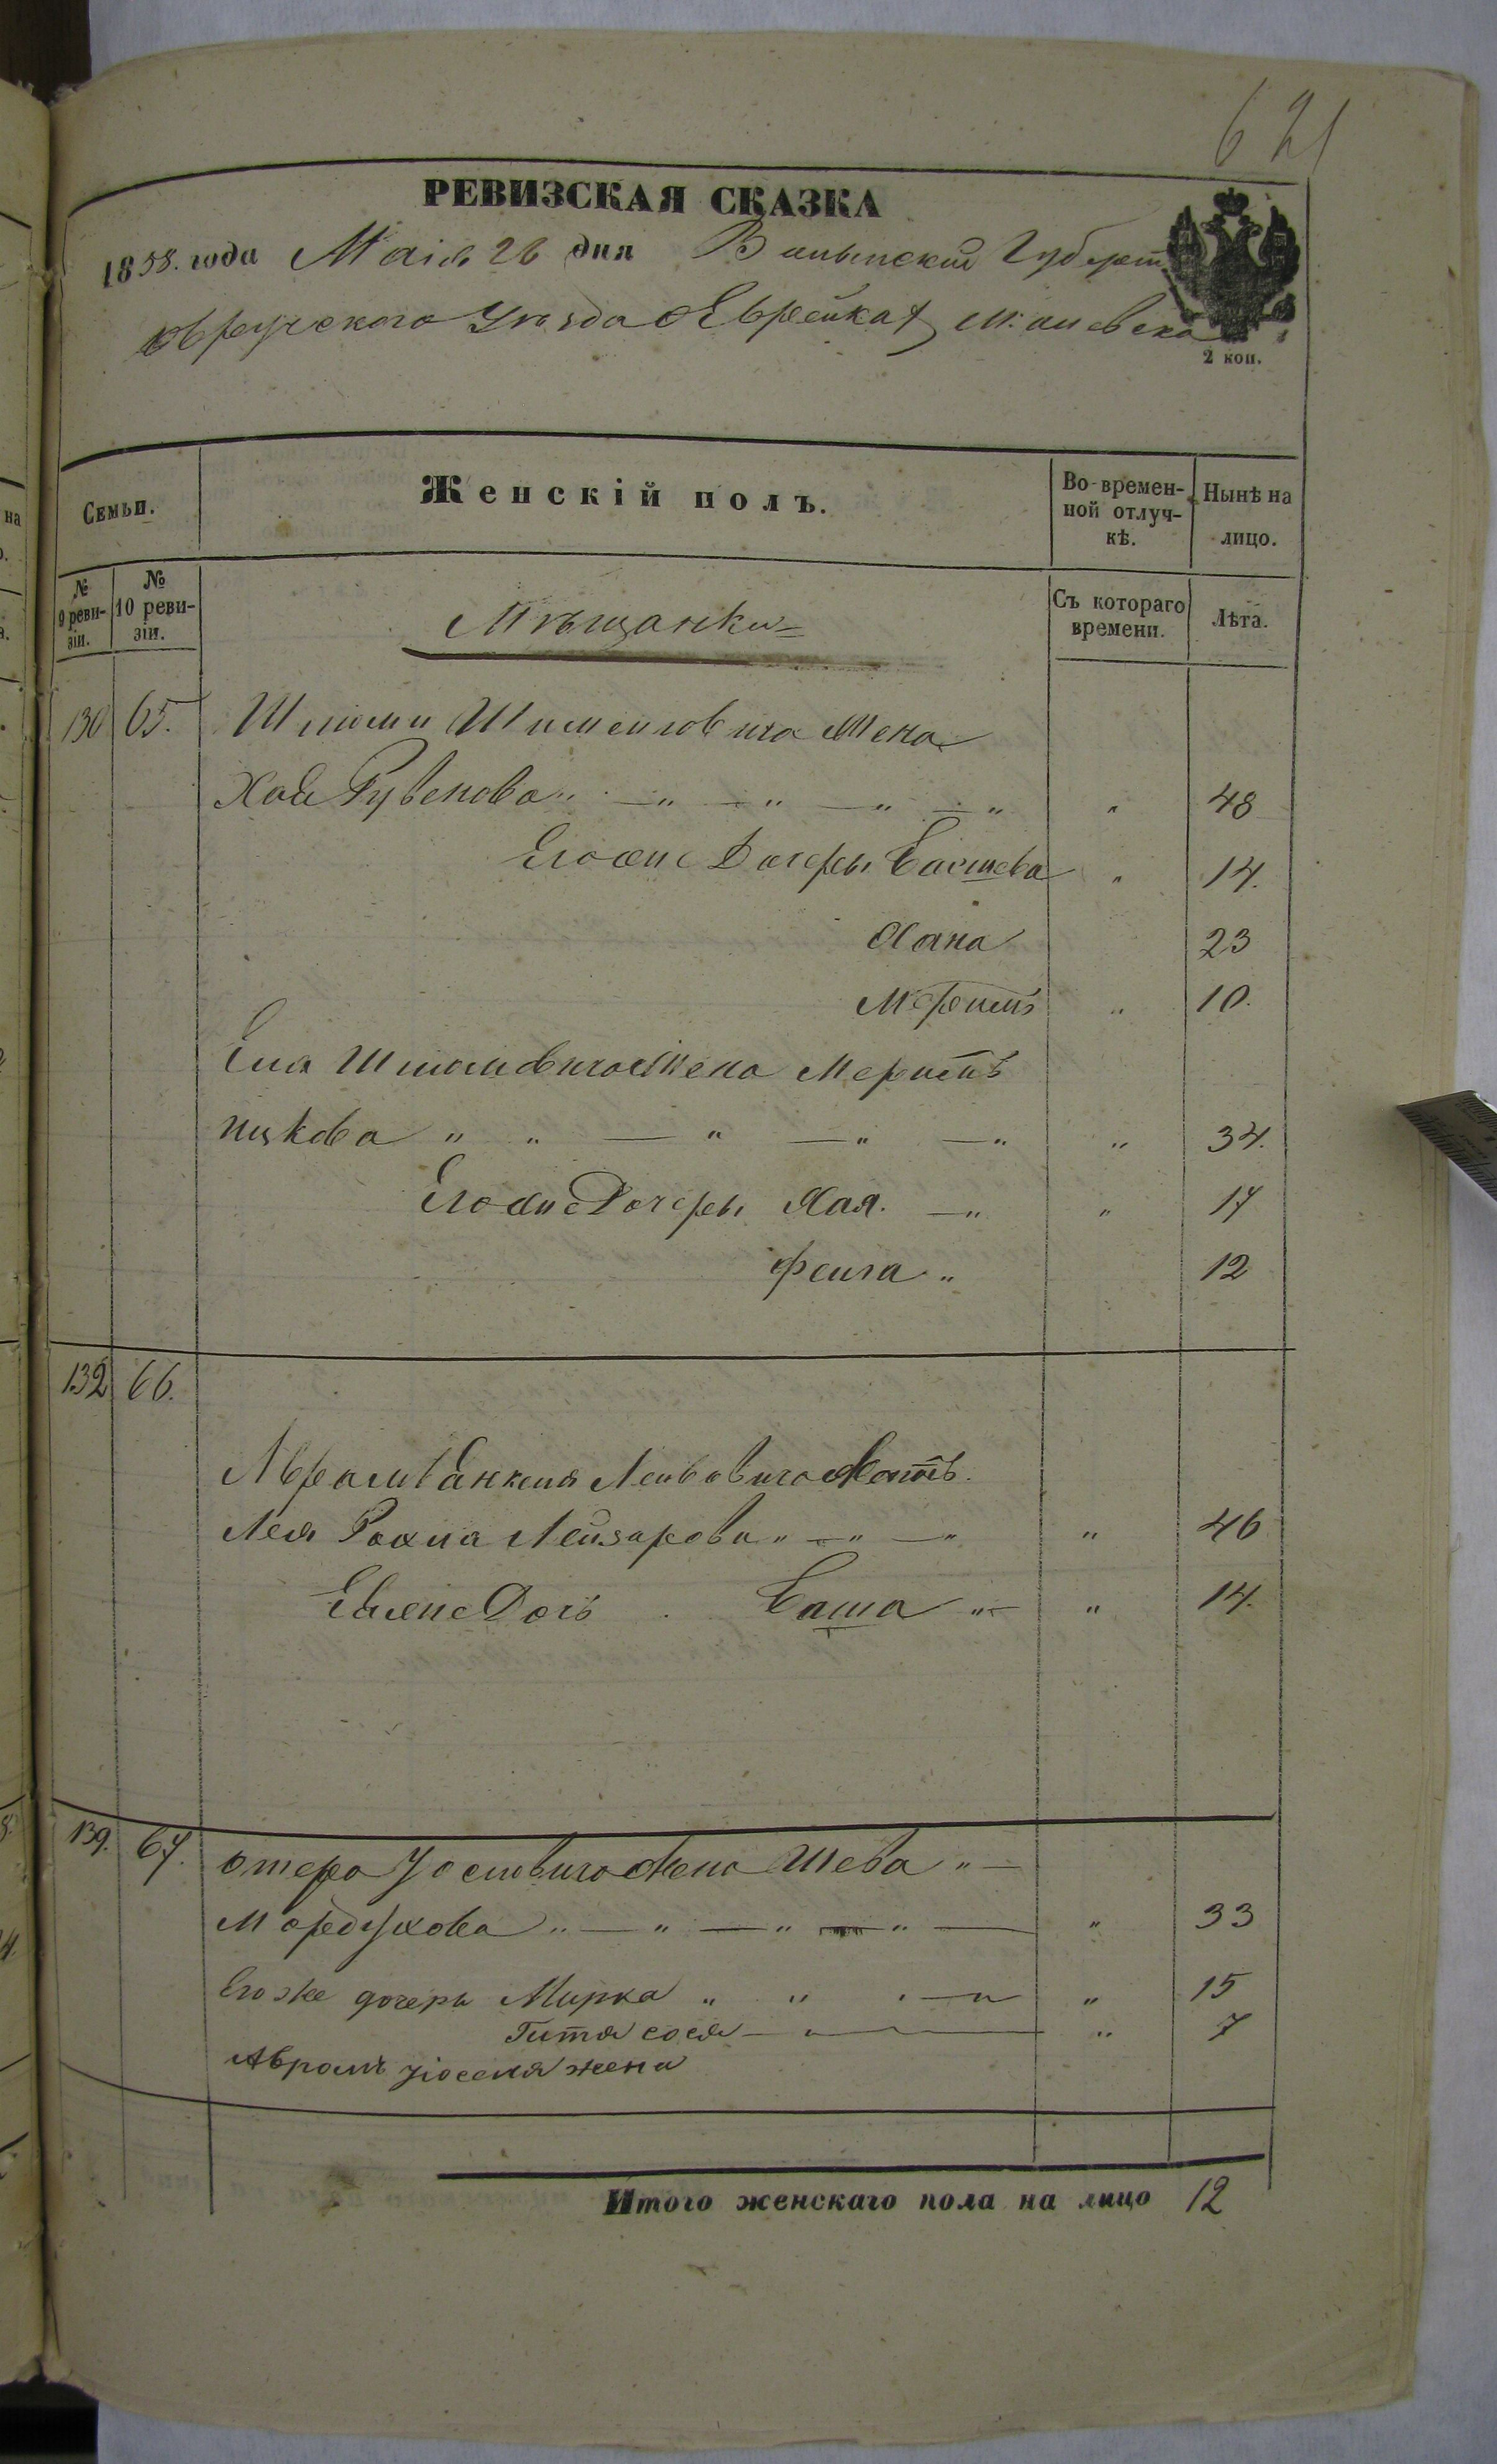 621
РЕВИЗСКАЯ СКАЗКА
1858. года Маія 26 дня Волынской Губерн
Овручского Уезда О Еврейкахъ м:
2 коп.
Семьи.
Женскій полъ.
Во-времен-
ной отлуч-
кѣ.
Нынѣ на
лицо.
№
9 реви-
зіи.
№
10 реви-
зіи.
Мѣщанки
Съ котораго
времени.
Лѣта.
130 65. Шлiомы Жена
Хая Рувенова " — " — " — " — " " 48
Егоже Дочеры Басшева " 14.
Хана 23
Мерымъ " 10.
Еля Шлiомовича Жена Мерымъ
Ицкова " " — " — " — " " 34.
Егоже Дочеры Хая. — " " 17
Фейга " 12
132 66.
Аврам Янкеля Лейбовича Мать.
Лея Рохля Лейзарова " — " — " " 46
Еяже Дочь Баша " — " 14.
139. 67. Жена Шева " —
Мордухова " — " — " — " — " 33
Его же дочеры Мирка " " " — " " 15
Гитя сося — " — " 7
Аврамъ жена
Итого женскаго пола на лицо 12